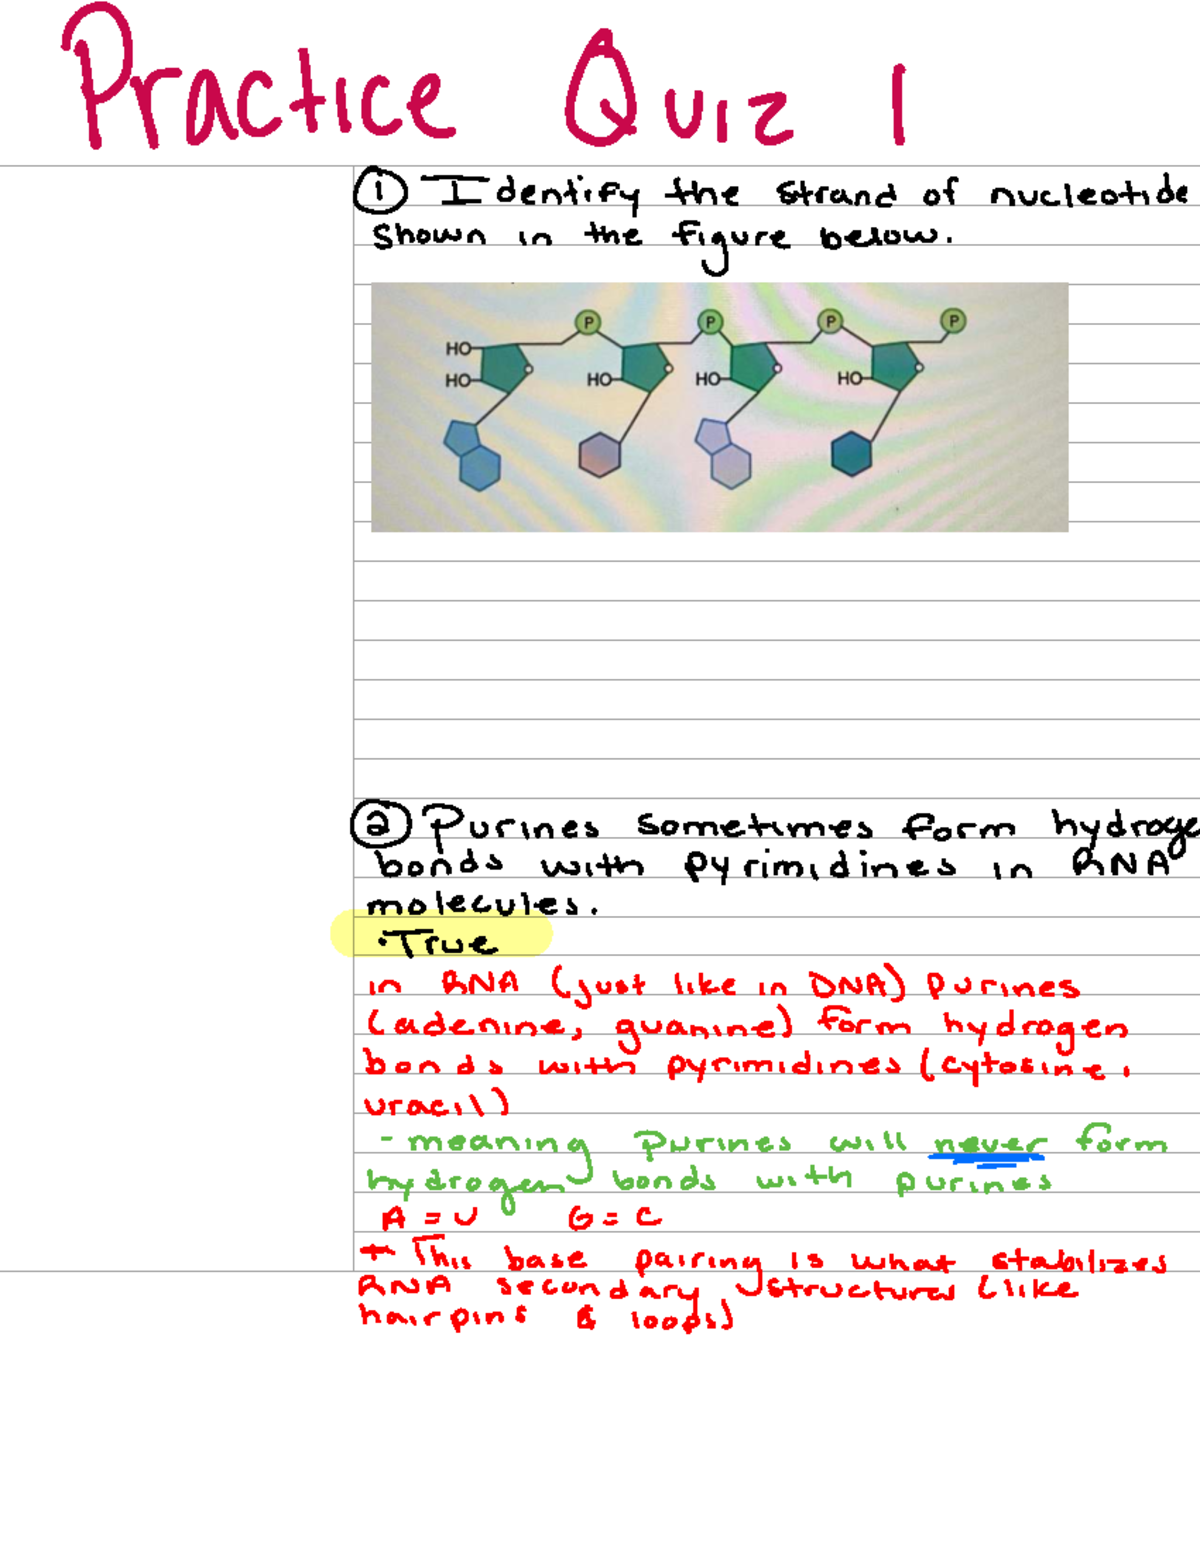 Practice Quiz 1
① Identify the strand of nucleotide
shown in the figure below.
P P P P
HO
HO HO HO HO
② Purines sometimes form hydroge
bonds with pyrimidines in RNA
molecules.
·True
in RNA (just like in DNA) purines
(adenine, guanine) form hydrogen
bonds with pyrimidines (cytosine,
uracil)
- meaning purines will never form
hydrogen bonds with purines
A = U G = C
+ This base pairing is what stabilizes
RNA secondary structures (like
hairpins & loops)